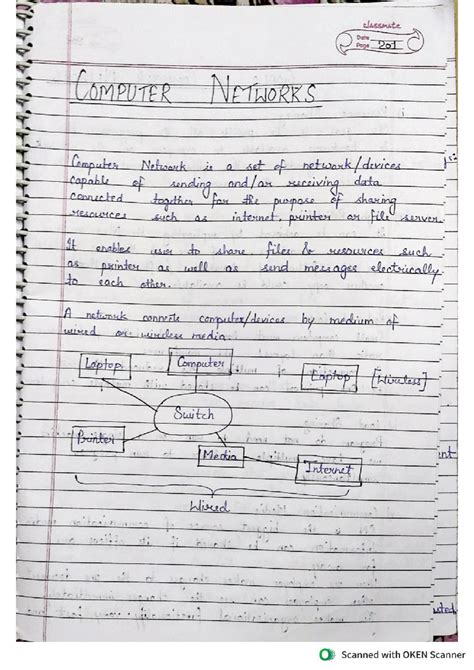 classmate
Date
Page 201
COMPUTER NETWORKS
Computer Network is a set of network/devices
capable of sending and/or receiving data
connected together for the purpose of sharing
resources such as internet, printer or file server.
It enables user to share files & resources such
as printer as well as send messages electrically
to each other.
A network connects computer/devices by medium of
wired or wireless media.
Laptop
Computer
Laptop
[Wireless]
Switch
Printer
Media
Internet
Wired
Scanned with OKEN Scanner